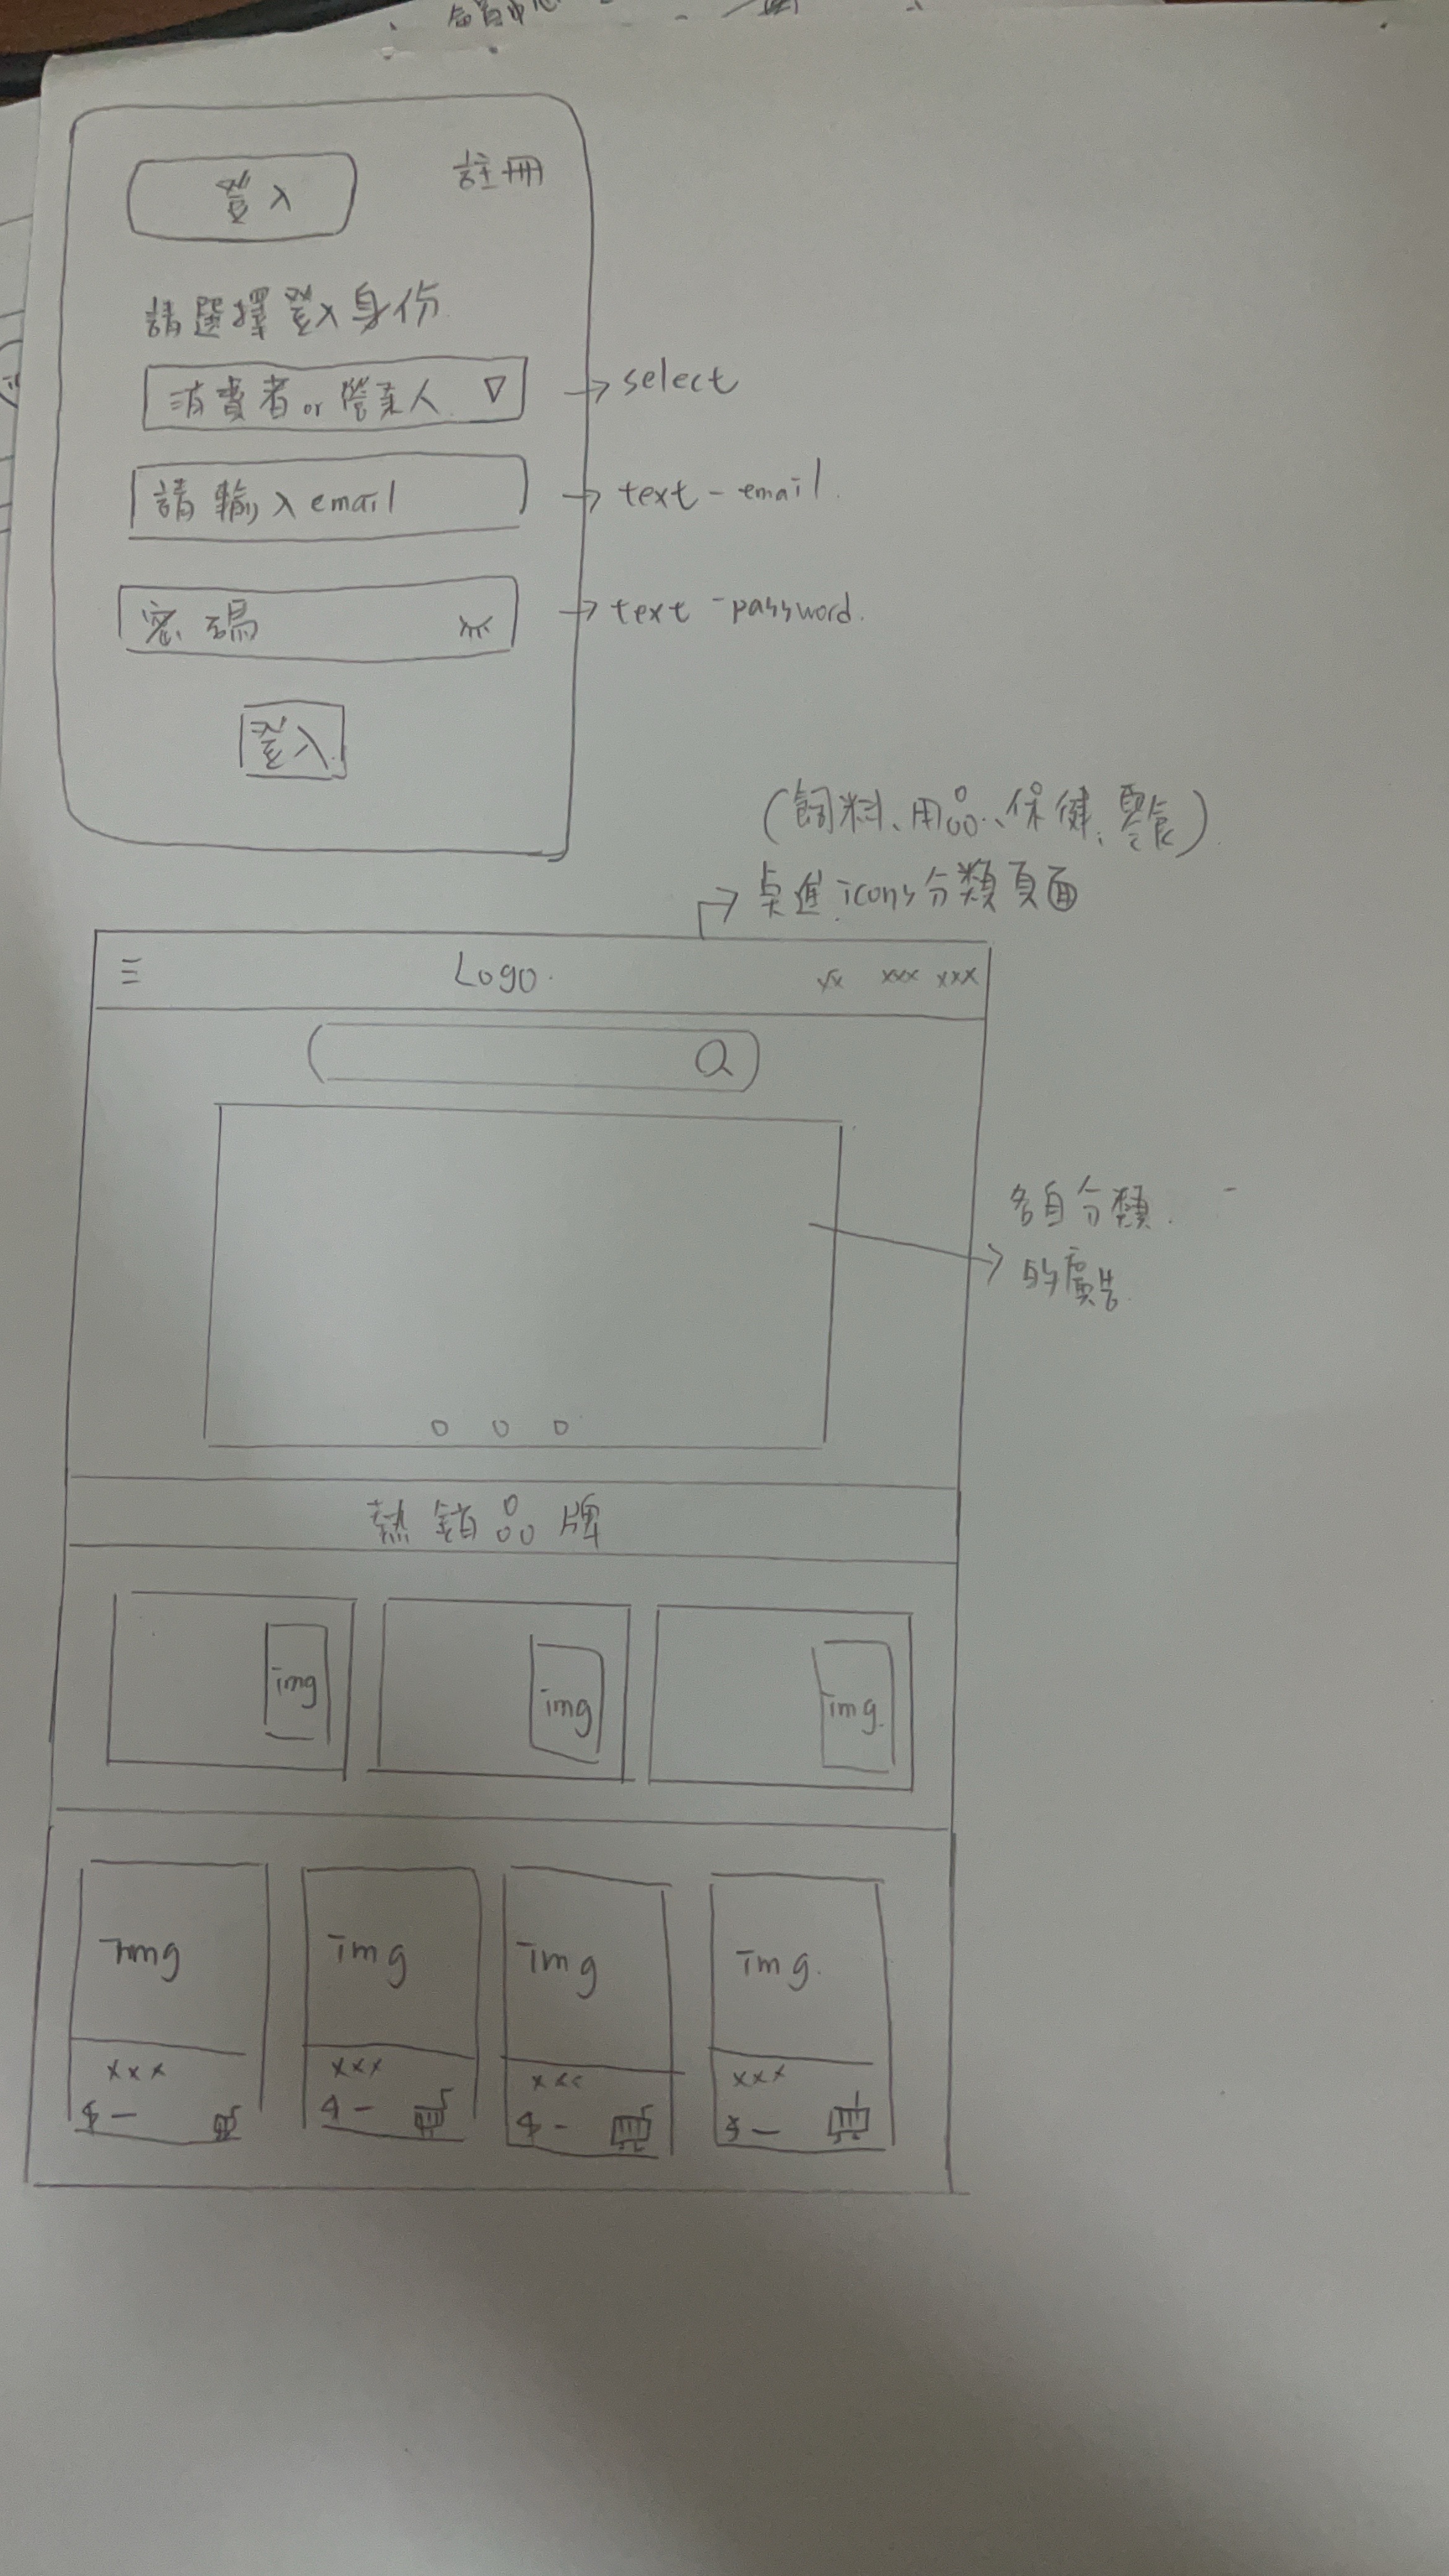 登入
註冊
請選擇登入身份
消費者or營業人
→ select
請輸入email
→ text - email.
密碼
→ text - password.
登入
(飼料、用品、保健、零食)
桌進icons分類頁面
Logo.
xx xxx xxx
各自分類
的廣告
熱銷品牌
img
img
img.
img
img
img
img.
xxx
xxx
xxx
xxx
$ -
$ -
$ -
$ -